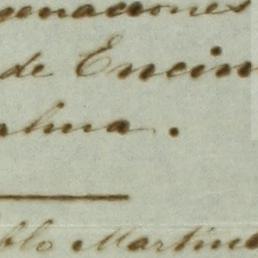 genaciones
de Encin
alma.
blo Martine